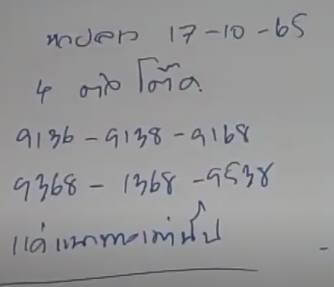 หาปลาว 17-10-65
4 ตัว โต๊ด
9136-9138-9168
9368-1368-9538
แค่แนวทางเท่านั้น